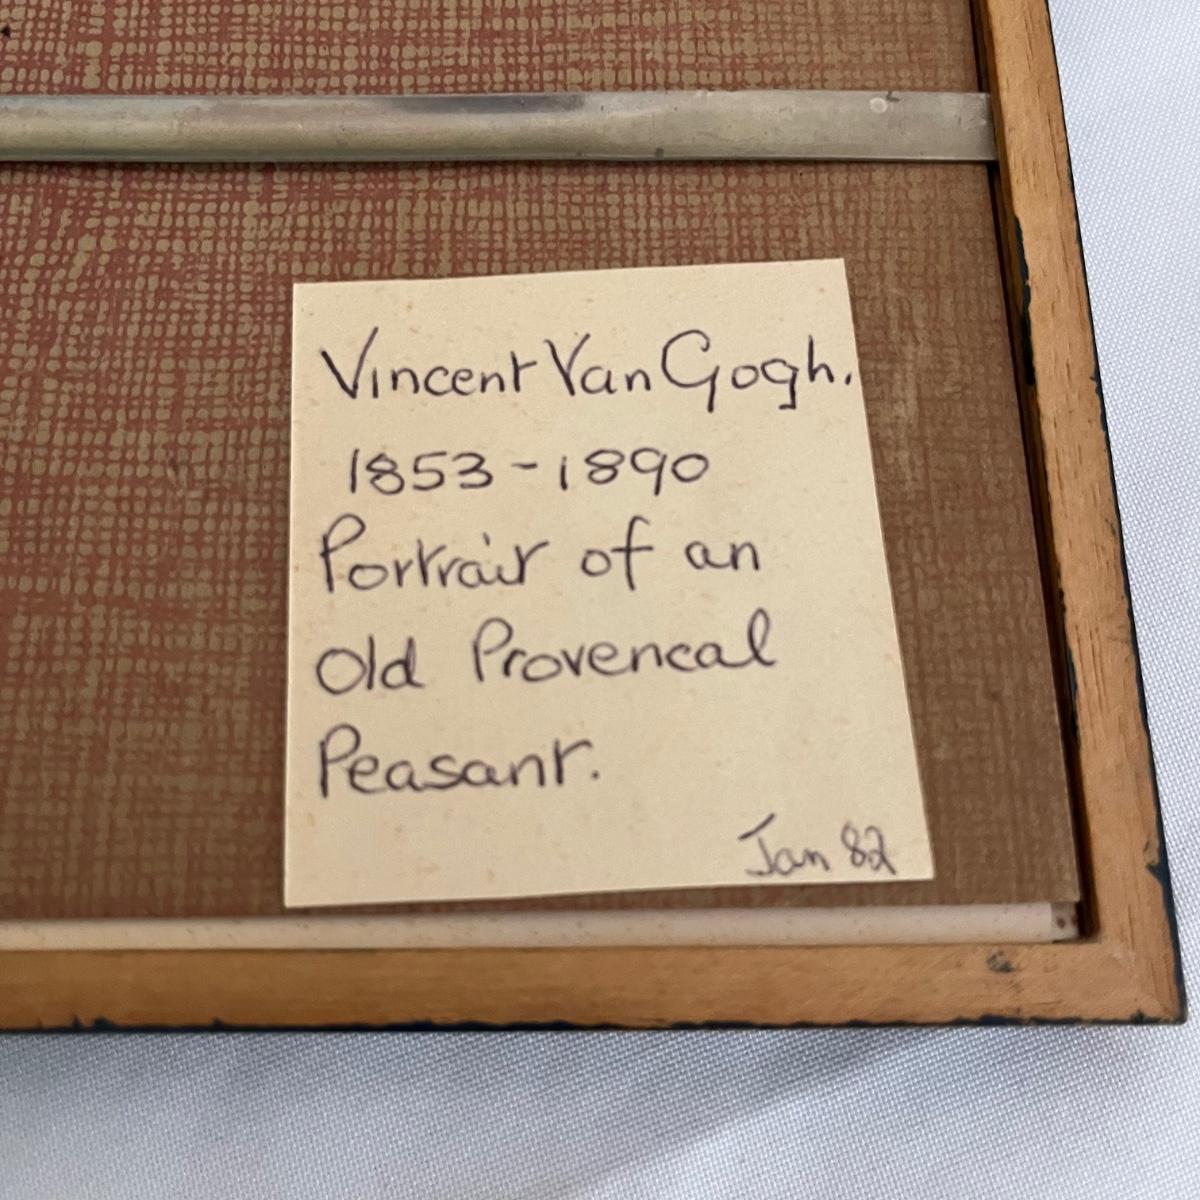 Vincent Van Gogh.
1853-1890
Portrait of an
Old Provencal
Peasant.
Jan 82